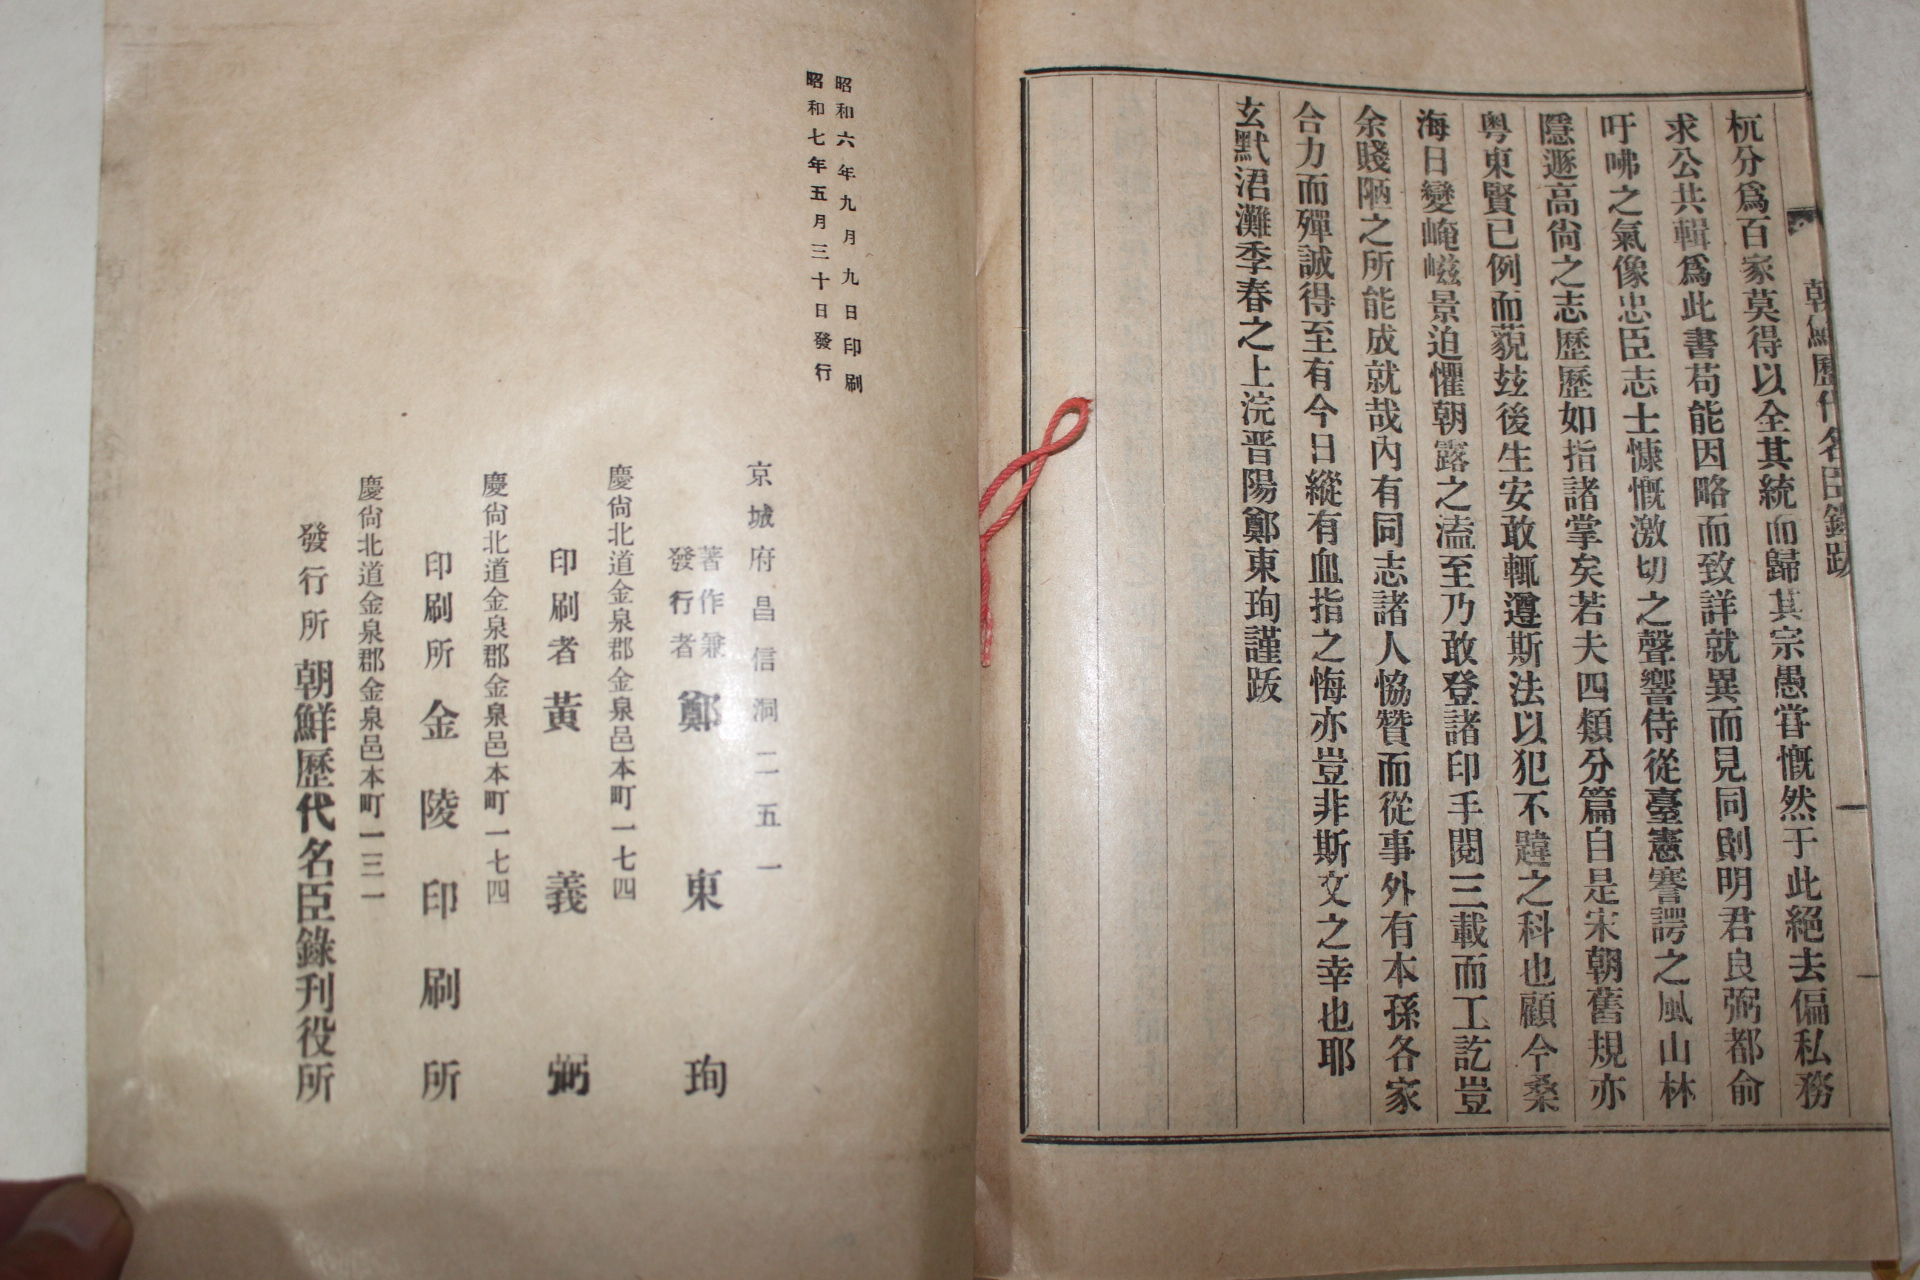 朝鮮歷代名臣錄跋
杭分爲百家莫得以全其統而歸其宗愚嘗慨然于此絕去偏私務
求公共輯爲此書苟能因略而致詳就異而見同則明君良弼都兪
吁咈之氣像忠臣志士慷慨激切之聲響侍從臺憲謇諤之風山林
隱遯高尙之志歷歷如指諸掌矣若夫四類分篇自是宋朝舊規亦
粤東賢已例而藐玆後生安敢輒遵斯法以犯不韙之科也顧今桑
海日變崦嵫景迫懼朝露之溘至乃敢登諸印手閱三載而工訖豈
余賤陋之所能成就哉內有同志諸人恊贊而從事外有本孫各家
合力而殫誠得至有今日縱有血指之悔亦豈非斯文之幸也耶
玄默涒灘季春之上浣晋陽鄭東珣謹跋
昭和六年九月九日印刷
昭和七年五月三十日發行
京城府昌信洞二五一
著作兼發行者 鄭東珣
慶尙北道金泉郡金泉邑本町一七四
印刷者 黃義弼
慶尙北道金泉郡金泉邑本町一七四
印刷所 金陵印刷所
慶尙北道金泉郡金泉邑本町一三一
發行所 朝鮮歷代名臣錄刊役所